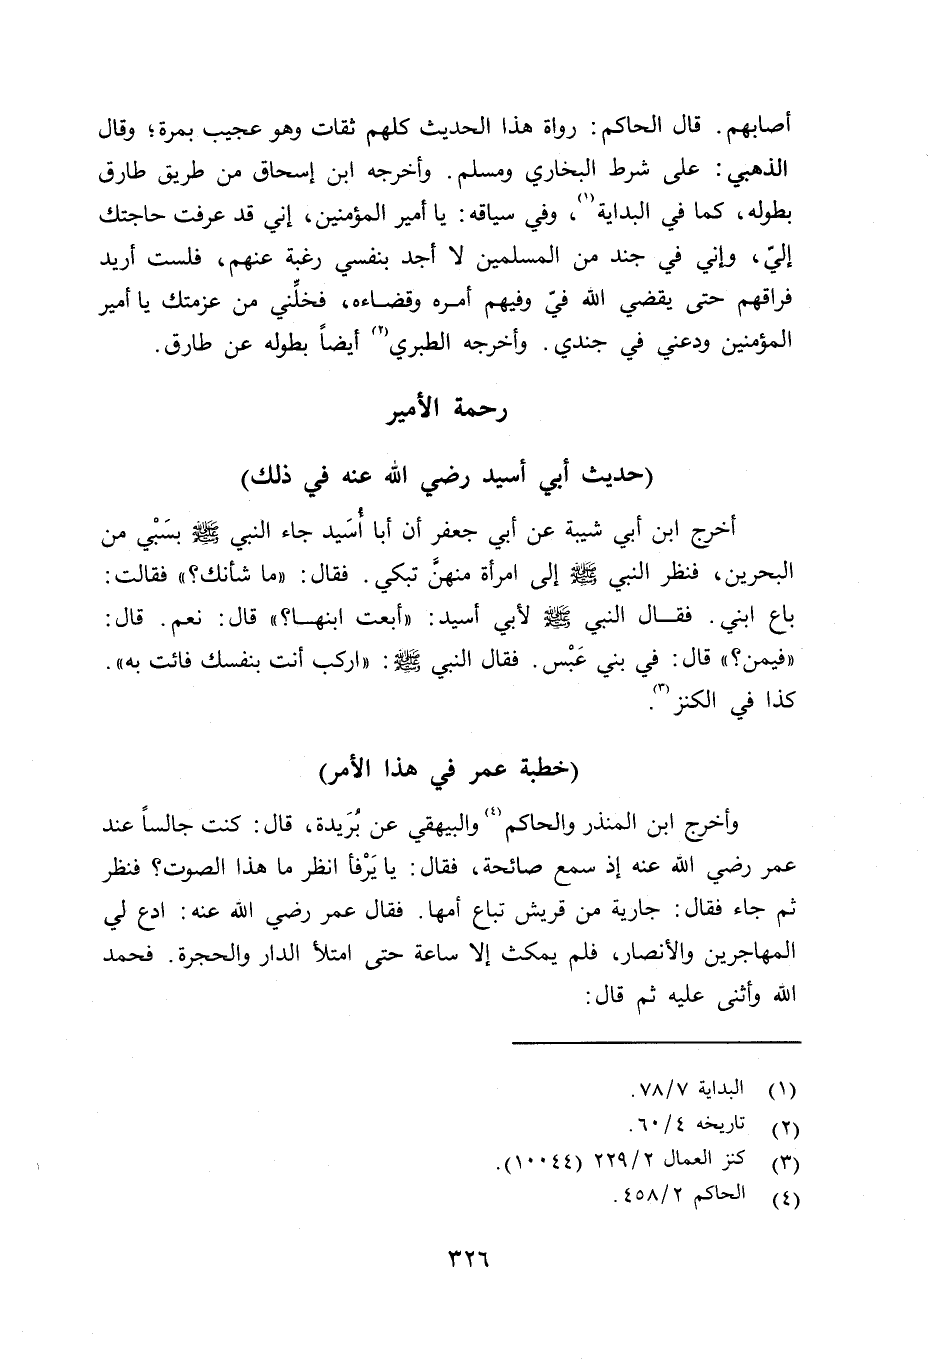 أصابهم. قال الحاكم: رواة هذا الحديث كلهم ثقات وهو عجيب بمرة؛ وقال
الذهبي: على شرط البخاري ومسلم. وأخرجه ابن إسحاق من طريق طارق
بطوله، كما في البداية(١)، وفي سياقه: يا أمير المؤمنين، إني قد عرفت حاجتك
إليّ، وإني في جند من المسلمين لا أجد بنفسي رغبة عنهم، فلست أريد
فراقهم حتى يقضي الله فيّ وفيهم أمره وقضاءه، فخلِّني من عزمتك يا أمير
المؤمنين ودعني في جندي. وأخرجه الطبري(٢) أيضاً بطوله عن طارق.
رحمة الأمير
(حديث أبي أسيد رضي الله عنه في ذلك)
أخرج ابن أبي شيبة عن أبي جعفر أن أبا أُسَيد جاء النبي ﷺ بسَبْي من
البحرين، فنظر النبي ﷺ إلى امرأة منهنَّ تبكي. فقال: «ما شأنك؟» فقالت:
باع ابني. فقال النبي ﷺ لأبي أسيد: «أبعت ابنها؟» قال: نعم. قال:
«فيمن؟» قال: في بني عَبْس. فقال النبي ﷺ: «اركب أنت بنفسك فائت به».
كذا في الكنز(٣).
(خطبة عمر في هذا الأمر)
وأخرج ابن المنذر والحاكم(٤) والبيهقي عن بُرَيدة، قال: كنت جالساً عند
عمر رضي الله عنه إذ سمع صائحة، فقال: يا يَرْفأ انظر ما هذا الصوت؟ فنظر
ثم جاء فقال: جارية من قريش تباع أمها. فقال عمر رضي الله عنه: ادع لي
المهاجرين والأنصار، فلم يمكث إلا ساعة حتى امتلأ الدار والحجرة. فحمد
الله وأثنى عليه ثم قال:
(١) البداية ٧٨/٧.
(٢) تاريخه ٦٠/٤.
(٣) كنز العمال ٢٢٩/٢ (١٠٠٤٤).
(٤) الحاكم ٤٥٨/٢.
٣٢٦